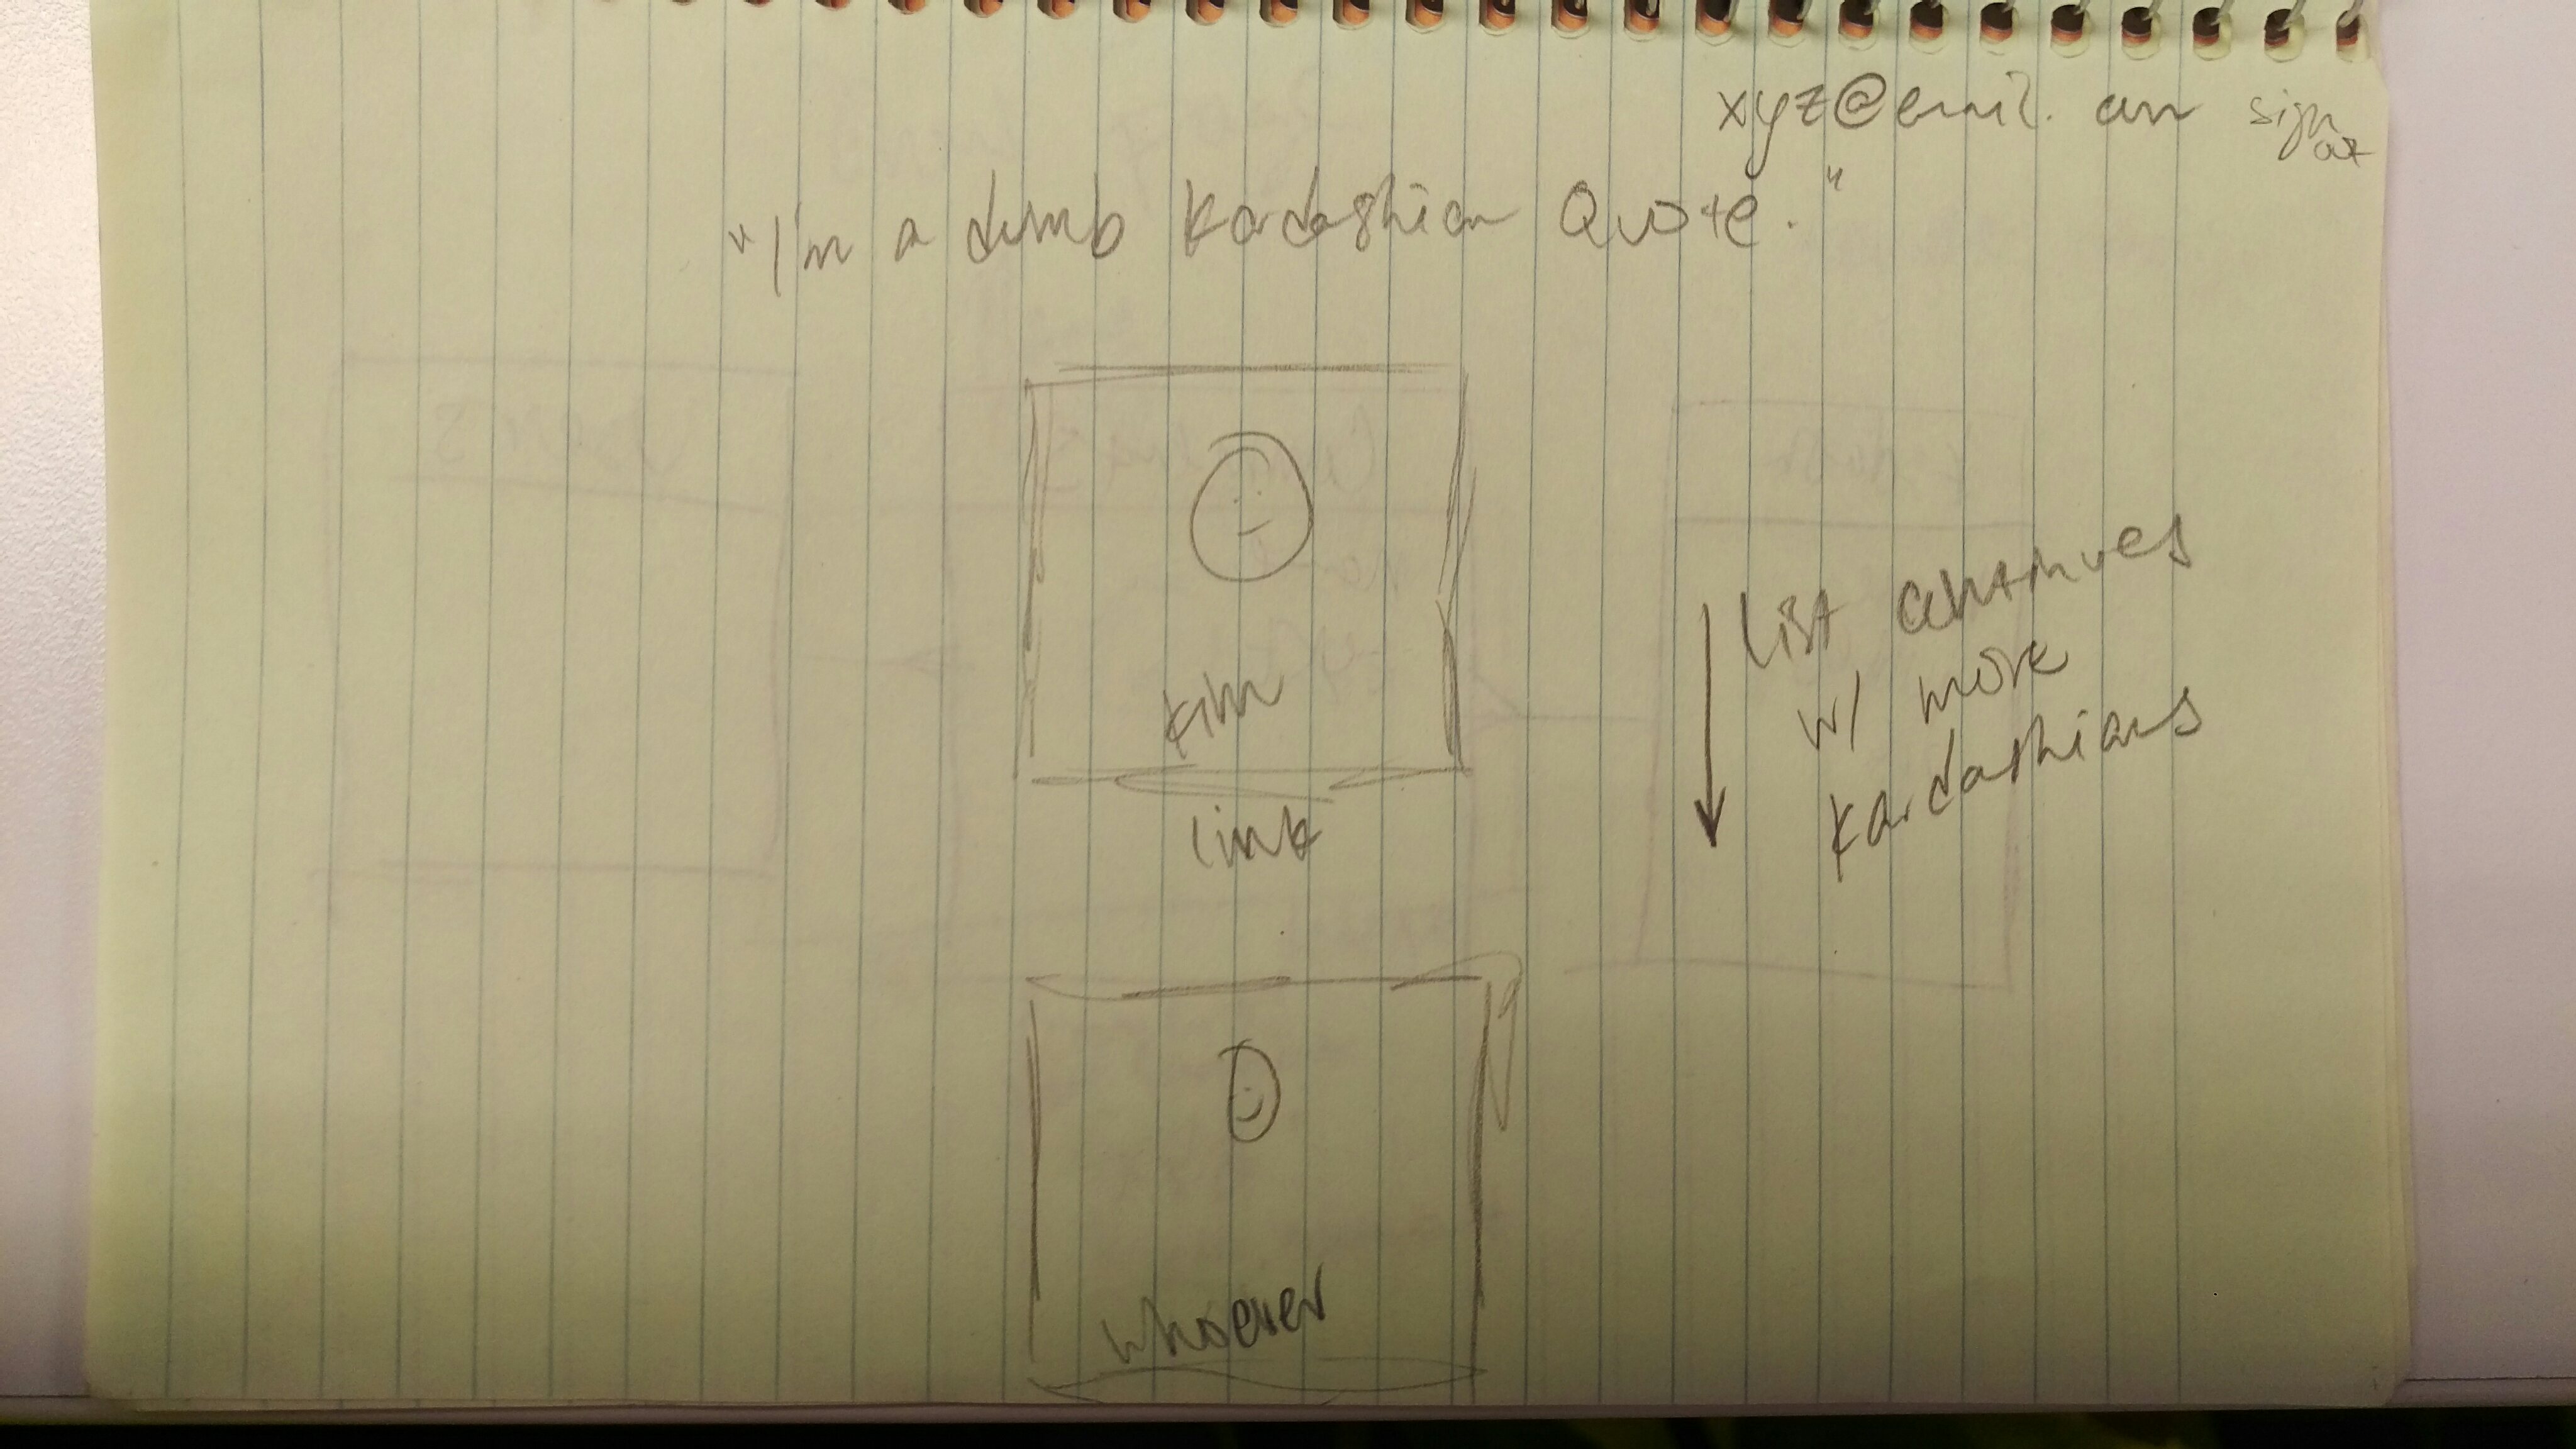 xyz@email.com sign out
"I'm a dumb Kardashian Quote."
Kim
link
list continues
w/ more
Kardashians
whoever